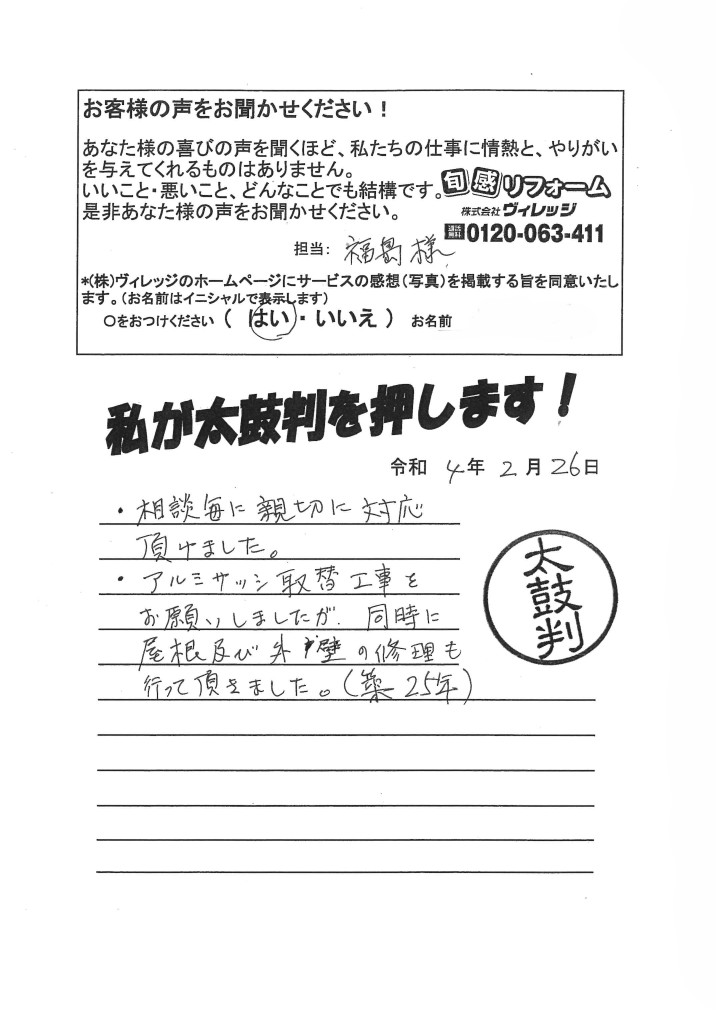 お客様の声をお聞かせください！
あなた様の喜びの声を聞くほど、私たちの仕事に情熱と、やりがい
を与えてくれるものはありません。
いいこと・悪いこと、どんなことでも結構です。
是非あなた様の声をお聞かせください。
旬感リフォーム
株式会社ヴィレッジ
通話無料 0120-063-411
担当: 福島様
*(株)ヴィレッジのホームページにサービスの感想(写真)を掲載する旨を同意いたし
ます。(お名前はイニシャルで表示します)
○をおつけください ( はい・いいえ ) お名前
私が太鼓判を押します！
令和 4年 2月 26日
・相談毎に親切に対応
頂けました。
・アルミサッシ取替工事を
お願いしましたが、同時に
屋根及び外壁の修理も
行って頂きました。(築25年)
太鼓判